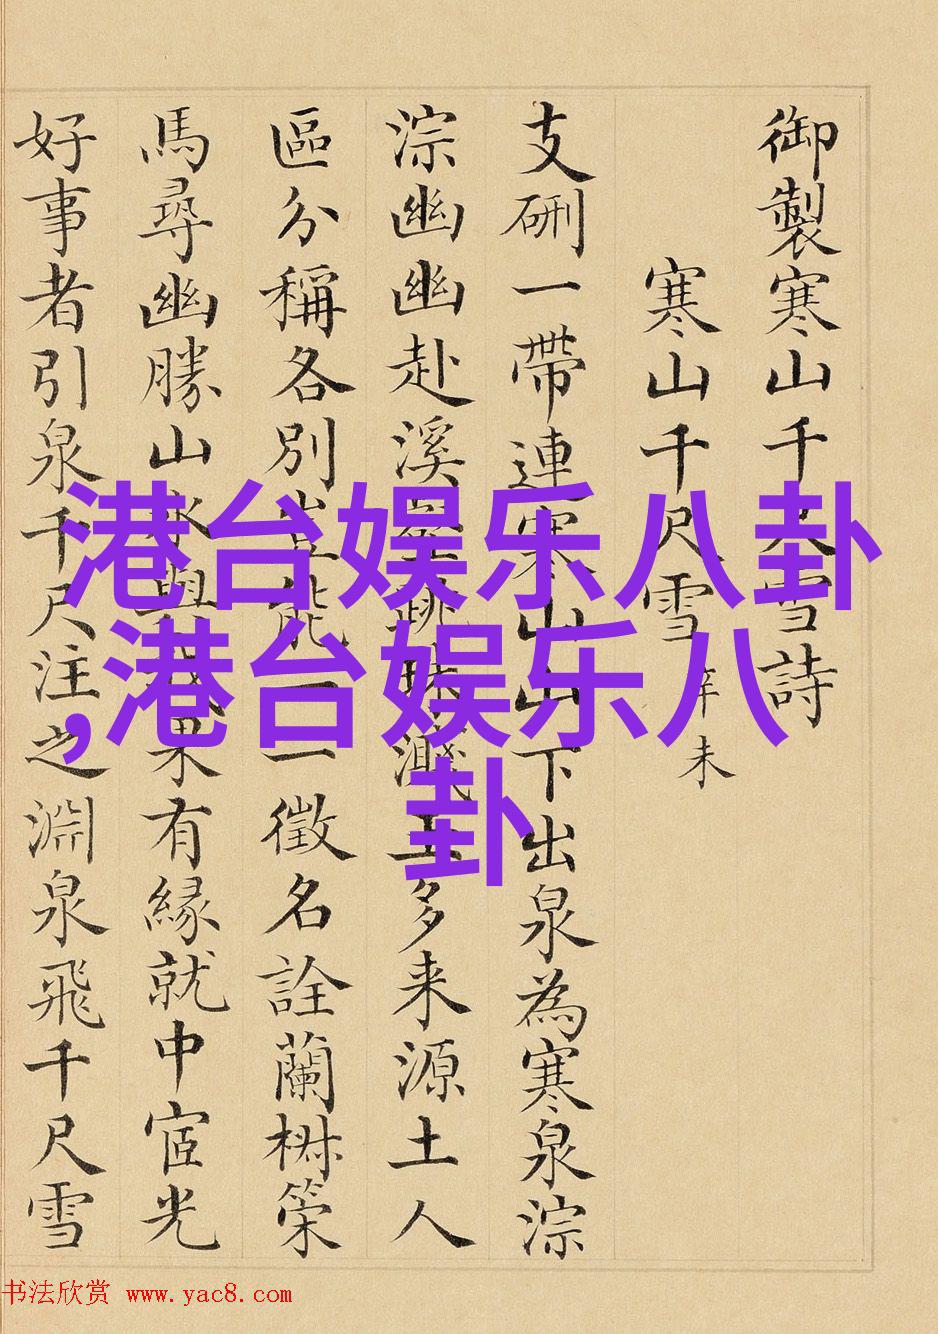 御製寒山千尺雪詩
寒山千尺雪辛未
支硎一帶連寒山山下出泉為寒泉淙
淙幽幽赴溪壑跳珠濺玉多来源土人
區分稱各別豈能一一徵名詮蘭椒策
馬尋幽勝山水與我果有緣就中宧光
好事者引泉千尺注之淵泉飛千尺雪
港台娱乐八卦
,港台娱乐八
卦
书法欣赏 www.yac8.com